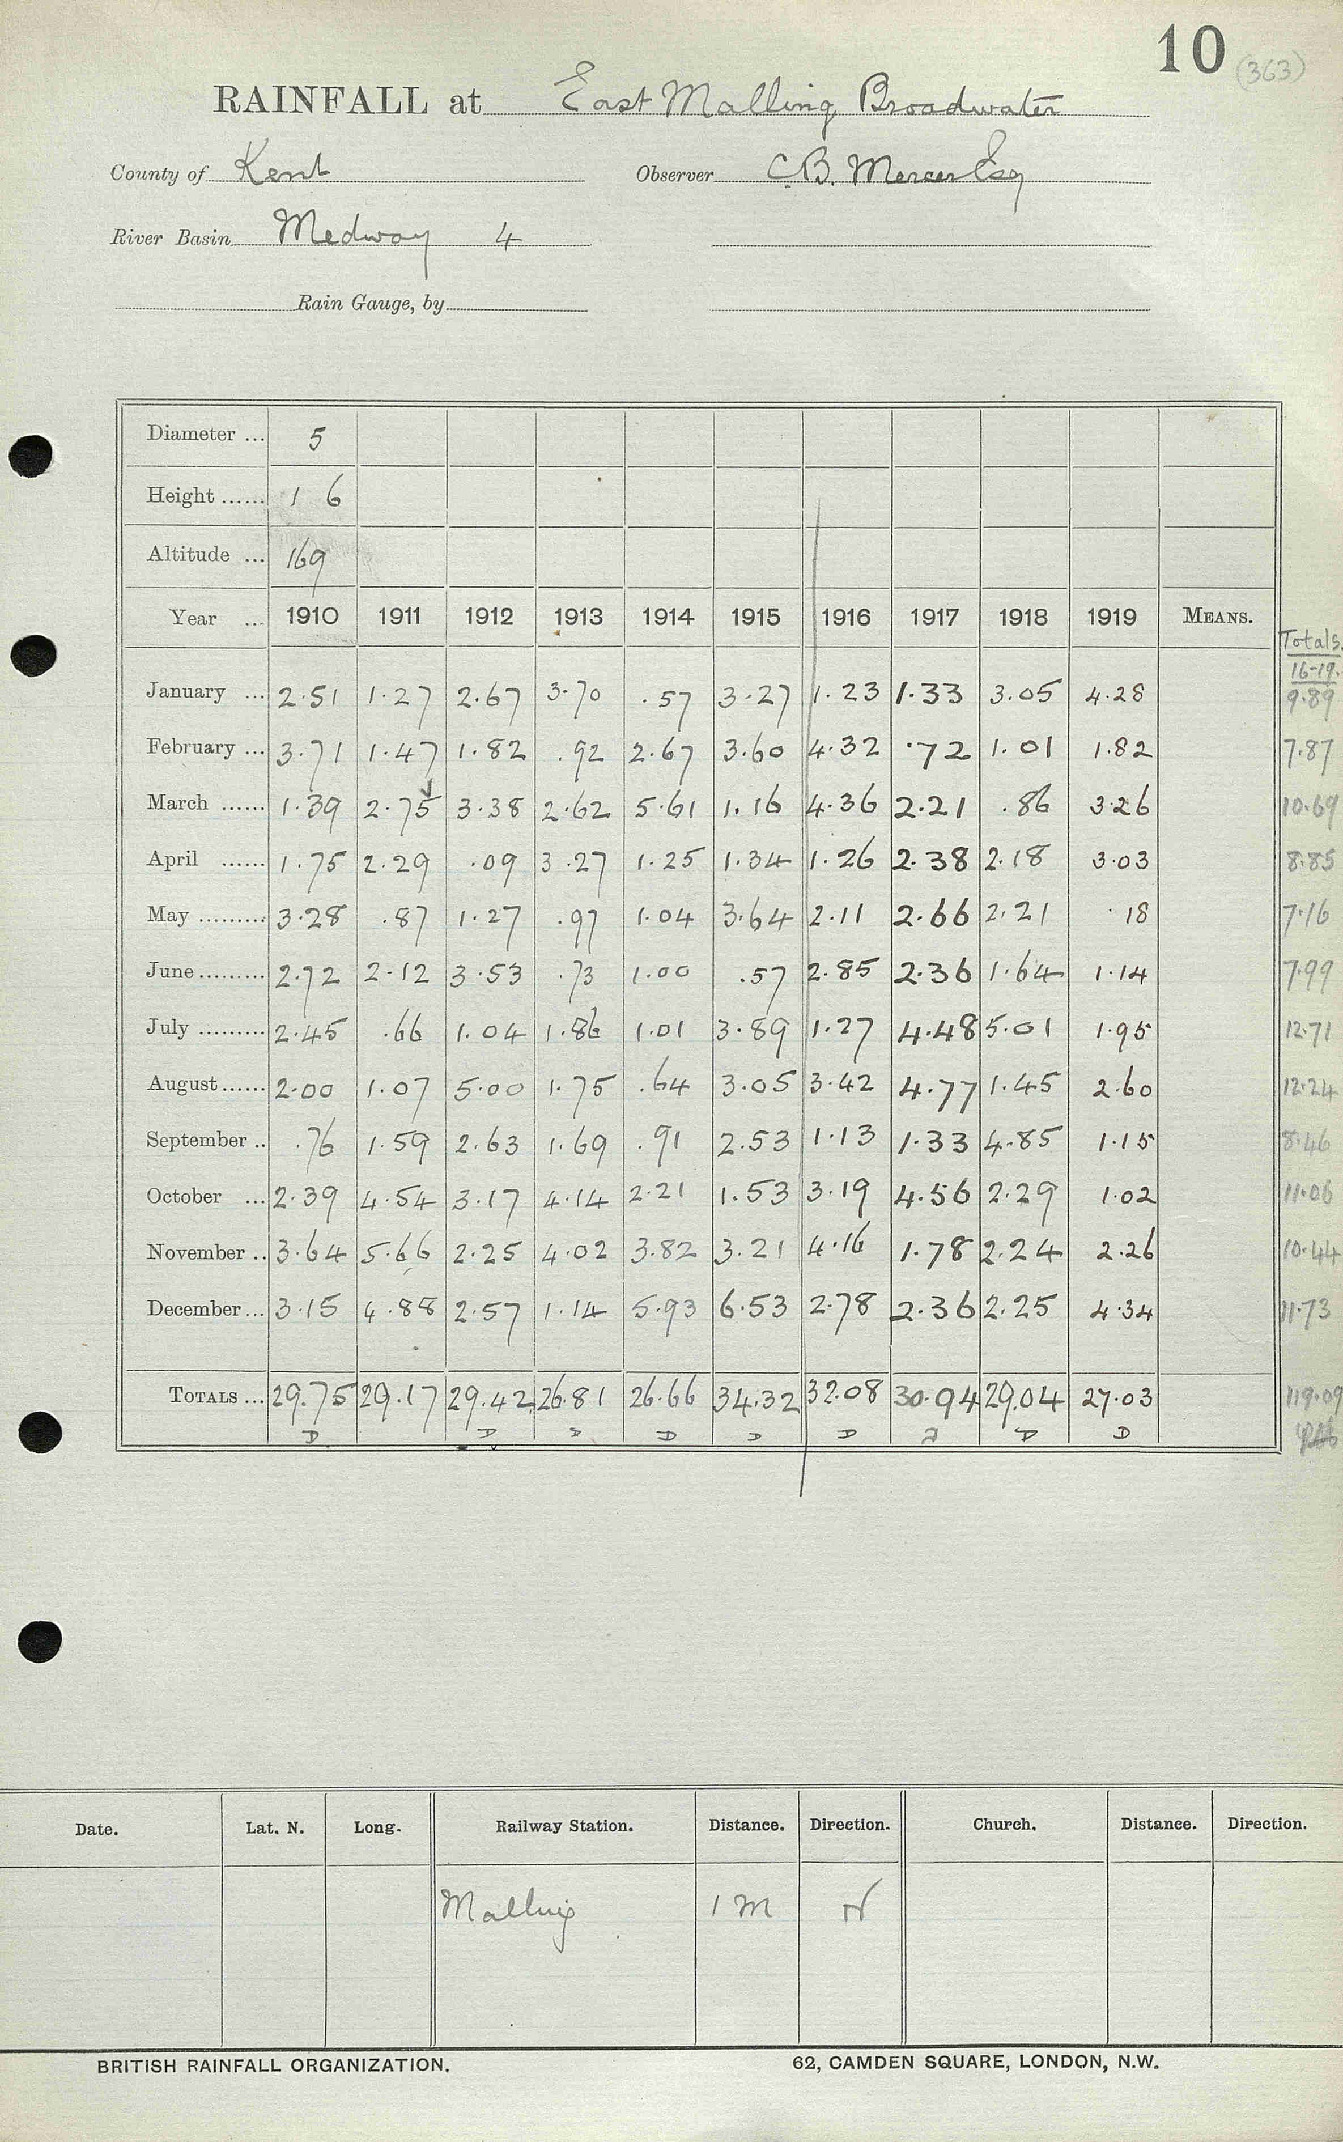 10 (363)
RAINFALL at East Malling Broadwater
County of Kent Observer C.B. Mercer Esq
River Basin Medway 4
Rain Gauge, by
Diameter ... 5
Height ...... 1 6
Altitude ... 169
Year ... 1910 1911 1912 1913 1914 1915 1916 1917 1918 1919 MEANS.
Totals.
16-19.
January ... 2.51 1.27 2.67 3.70 .57 3.27 1.23 1.33 3.05 4.28 9.89
February ... 3.71 1.47 1.82 .92 2.67 3.60 4.32 .72 1.01 1.82 7.87
March ...... 1.39 2.75 3.38 2.62 5.61 1.16 4.36 2.21 .86 3.26 10.69
April ...... 1.75 2.29 .09 3.27 1.25 1.34 1.26 2.38 2.18 3.03 8.85
May ......... 3.28 .87 1.27 .97 1.04 3.64 2.11 2.66 2.21 .18 7.16
June ......... 2.72 2.12 3.53 .73 1.00 .57 2.85 2.36 1.64 1.14 7.99
July ......... 2.45 .66 1.04 1.86 1.01 3.89 1.27 4.48 5.01 1.95 12.71
August ...... 2.00 1.07 5.00 1.75 .64 3.05 3.42 4.77 1.45 2.60 12.24
September .. .76 1.59 2.63 1.69 .91 2.53 1.13 1.33 4.85 1.15 8.46
October ... 2.39 4.54 3.17 4.14 2.21 1.53 3.19 4.56 2.29 1.02 11.06
November .. 3.64 5.66 2.25 4.02 3.82 3.21 4.16 1.78 2.24 2.26 10.44
December ... 3.15 4.88 2.57 1.14 5.93 6.53 2.78 2.36 2.25 4.34 11.73
TOTALS ... 29.75 29.17 29.42 26.81 26.66 34.32 32.08 30.94 29.04 27.03 119.09
D D D D D D D D D
Date. Lat. N. Long. Railway Station. Distance. Direction. Church. Distance. Direction.
Malling 1 m N
BRITISH RAINFALL ORGANIZATION. 62, CAMDEN SQUARE, LONDON, N.W.